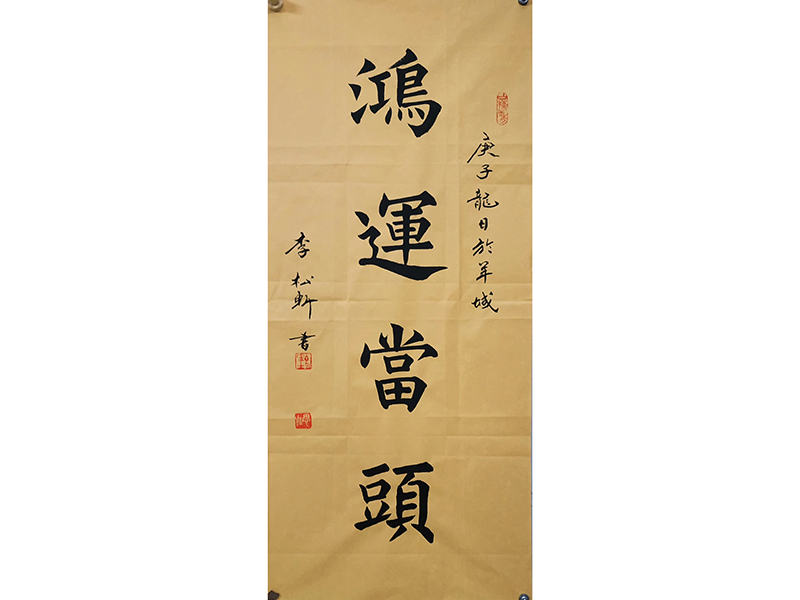 庚子龍日於羊城
鴻運當頭
李松軒書